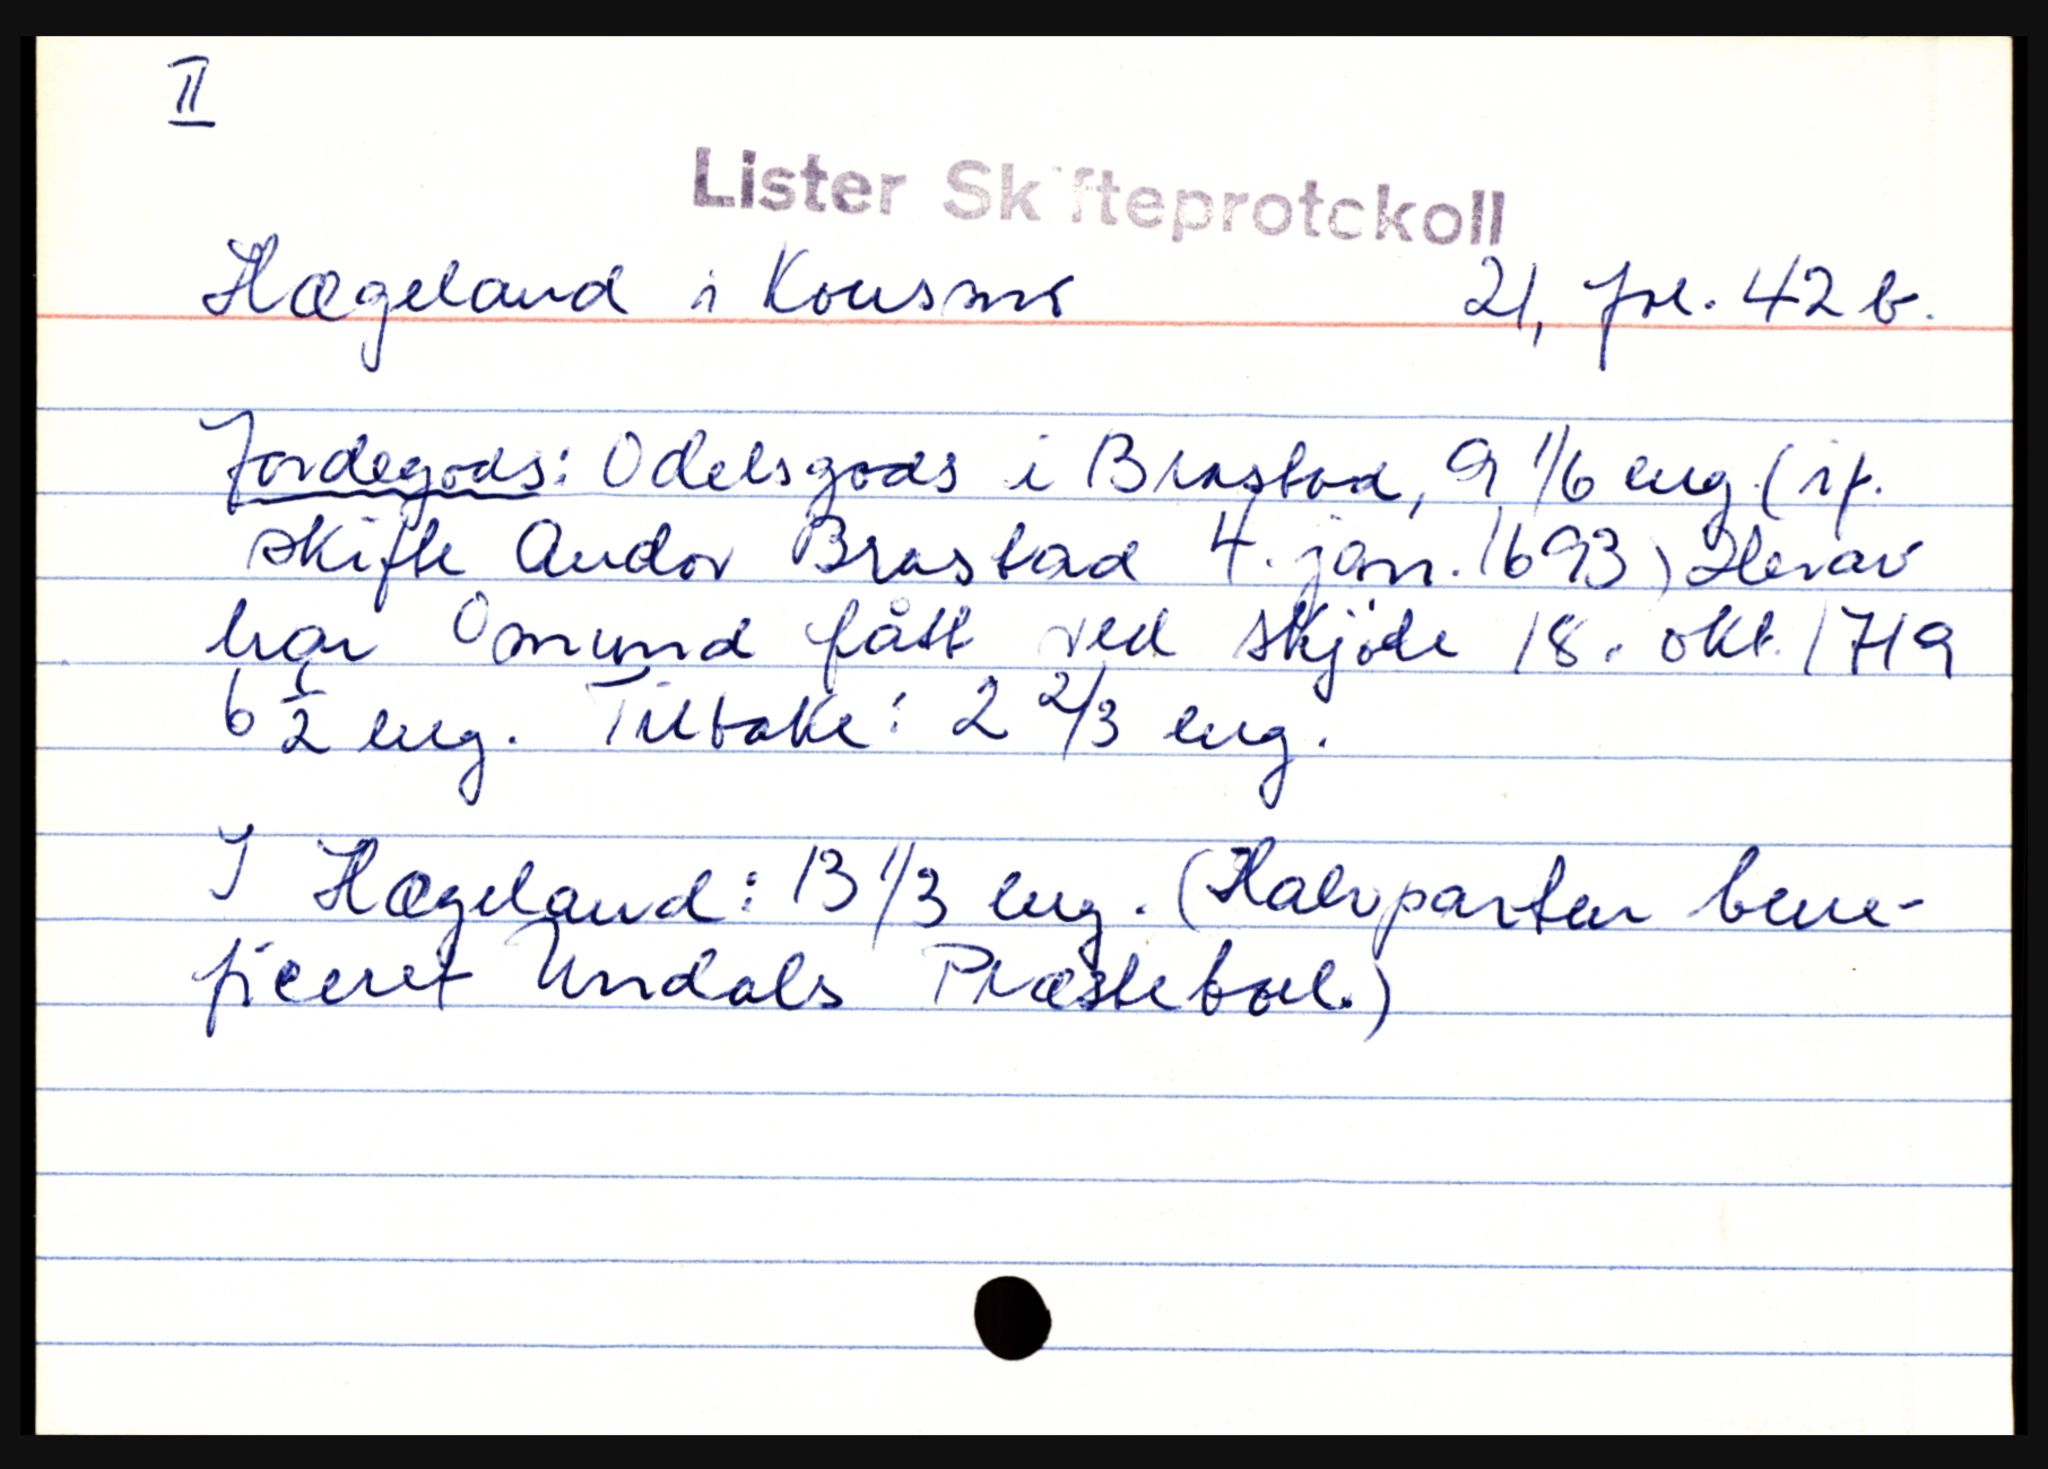 II
Lister Skifteprotokoll
Hægeland i Konsmo 21, fol. 42 b.
Jordegods: Odelsgods i Brastad, 9 1/6 eng. (if.
skifte Andor Brastad 4. jan. 1693) Herav
har Omund fått ved skjöte 18. okt. 1719
6 1/2 eng. Tilbake: 2 2/3 eng.
I Hægeland: 13 1/3 eng. (Halvparten bene-
ficeret Undals Præsteboel.)